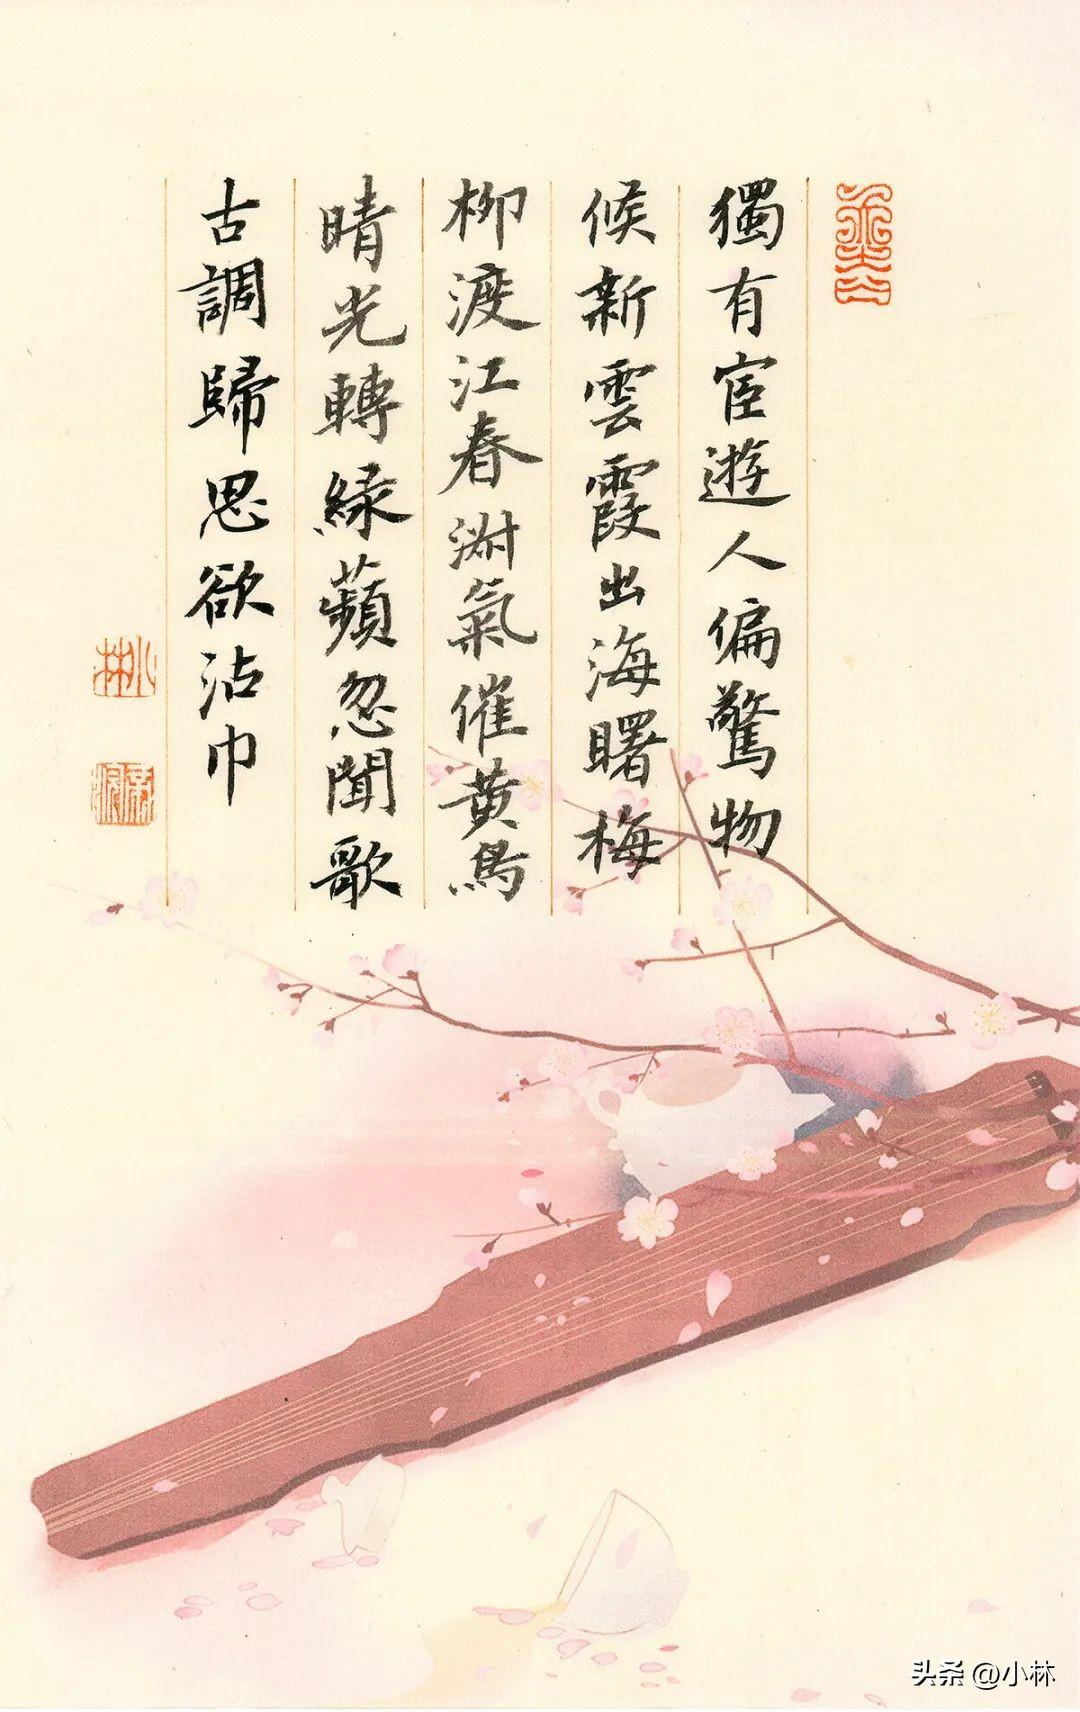 獨有宦遊人偏驚物
候新雲霞出海曙梅
柳渡江春淑氣催黃鳥
晴光轉緑蘋忽聞歌
古調歸思欲沾巾
小林
头条 @小林